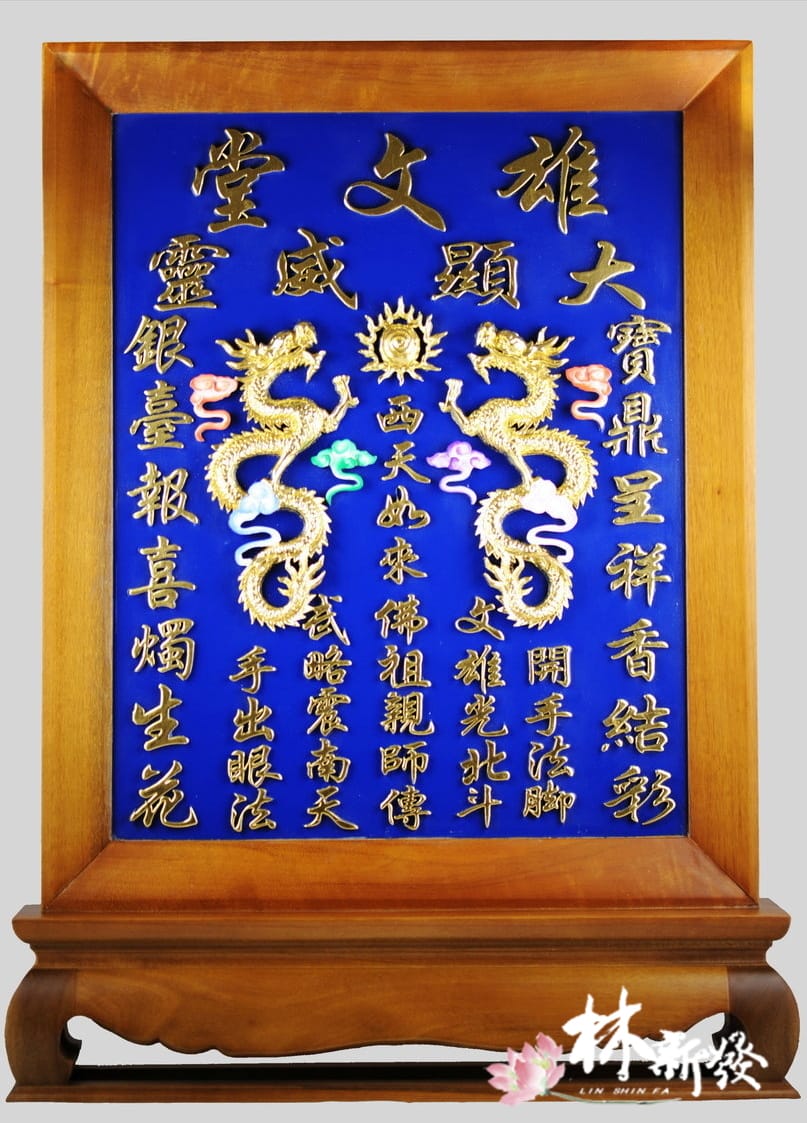 雄文堂
大顯威靈
寶鼎呈祥香結彩
開手法脚
文雄光北斗
西天如來佛祖親師傳
武略震南天
手出眼法
銀臺報喜燭生花
林新發
LIN SHIN FA